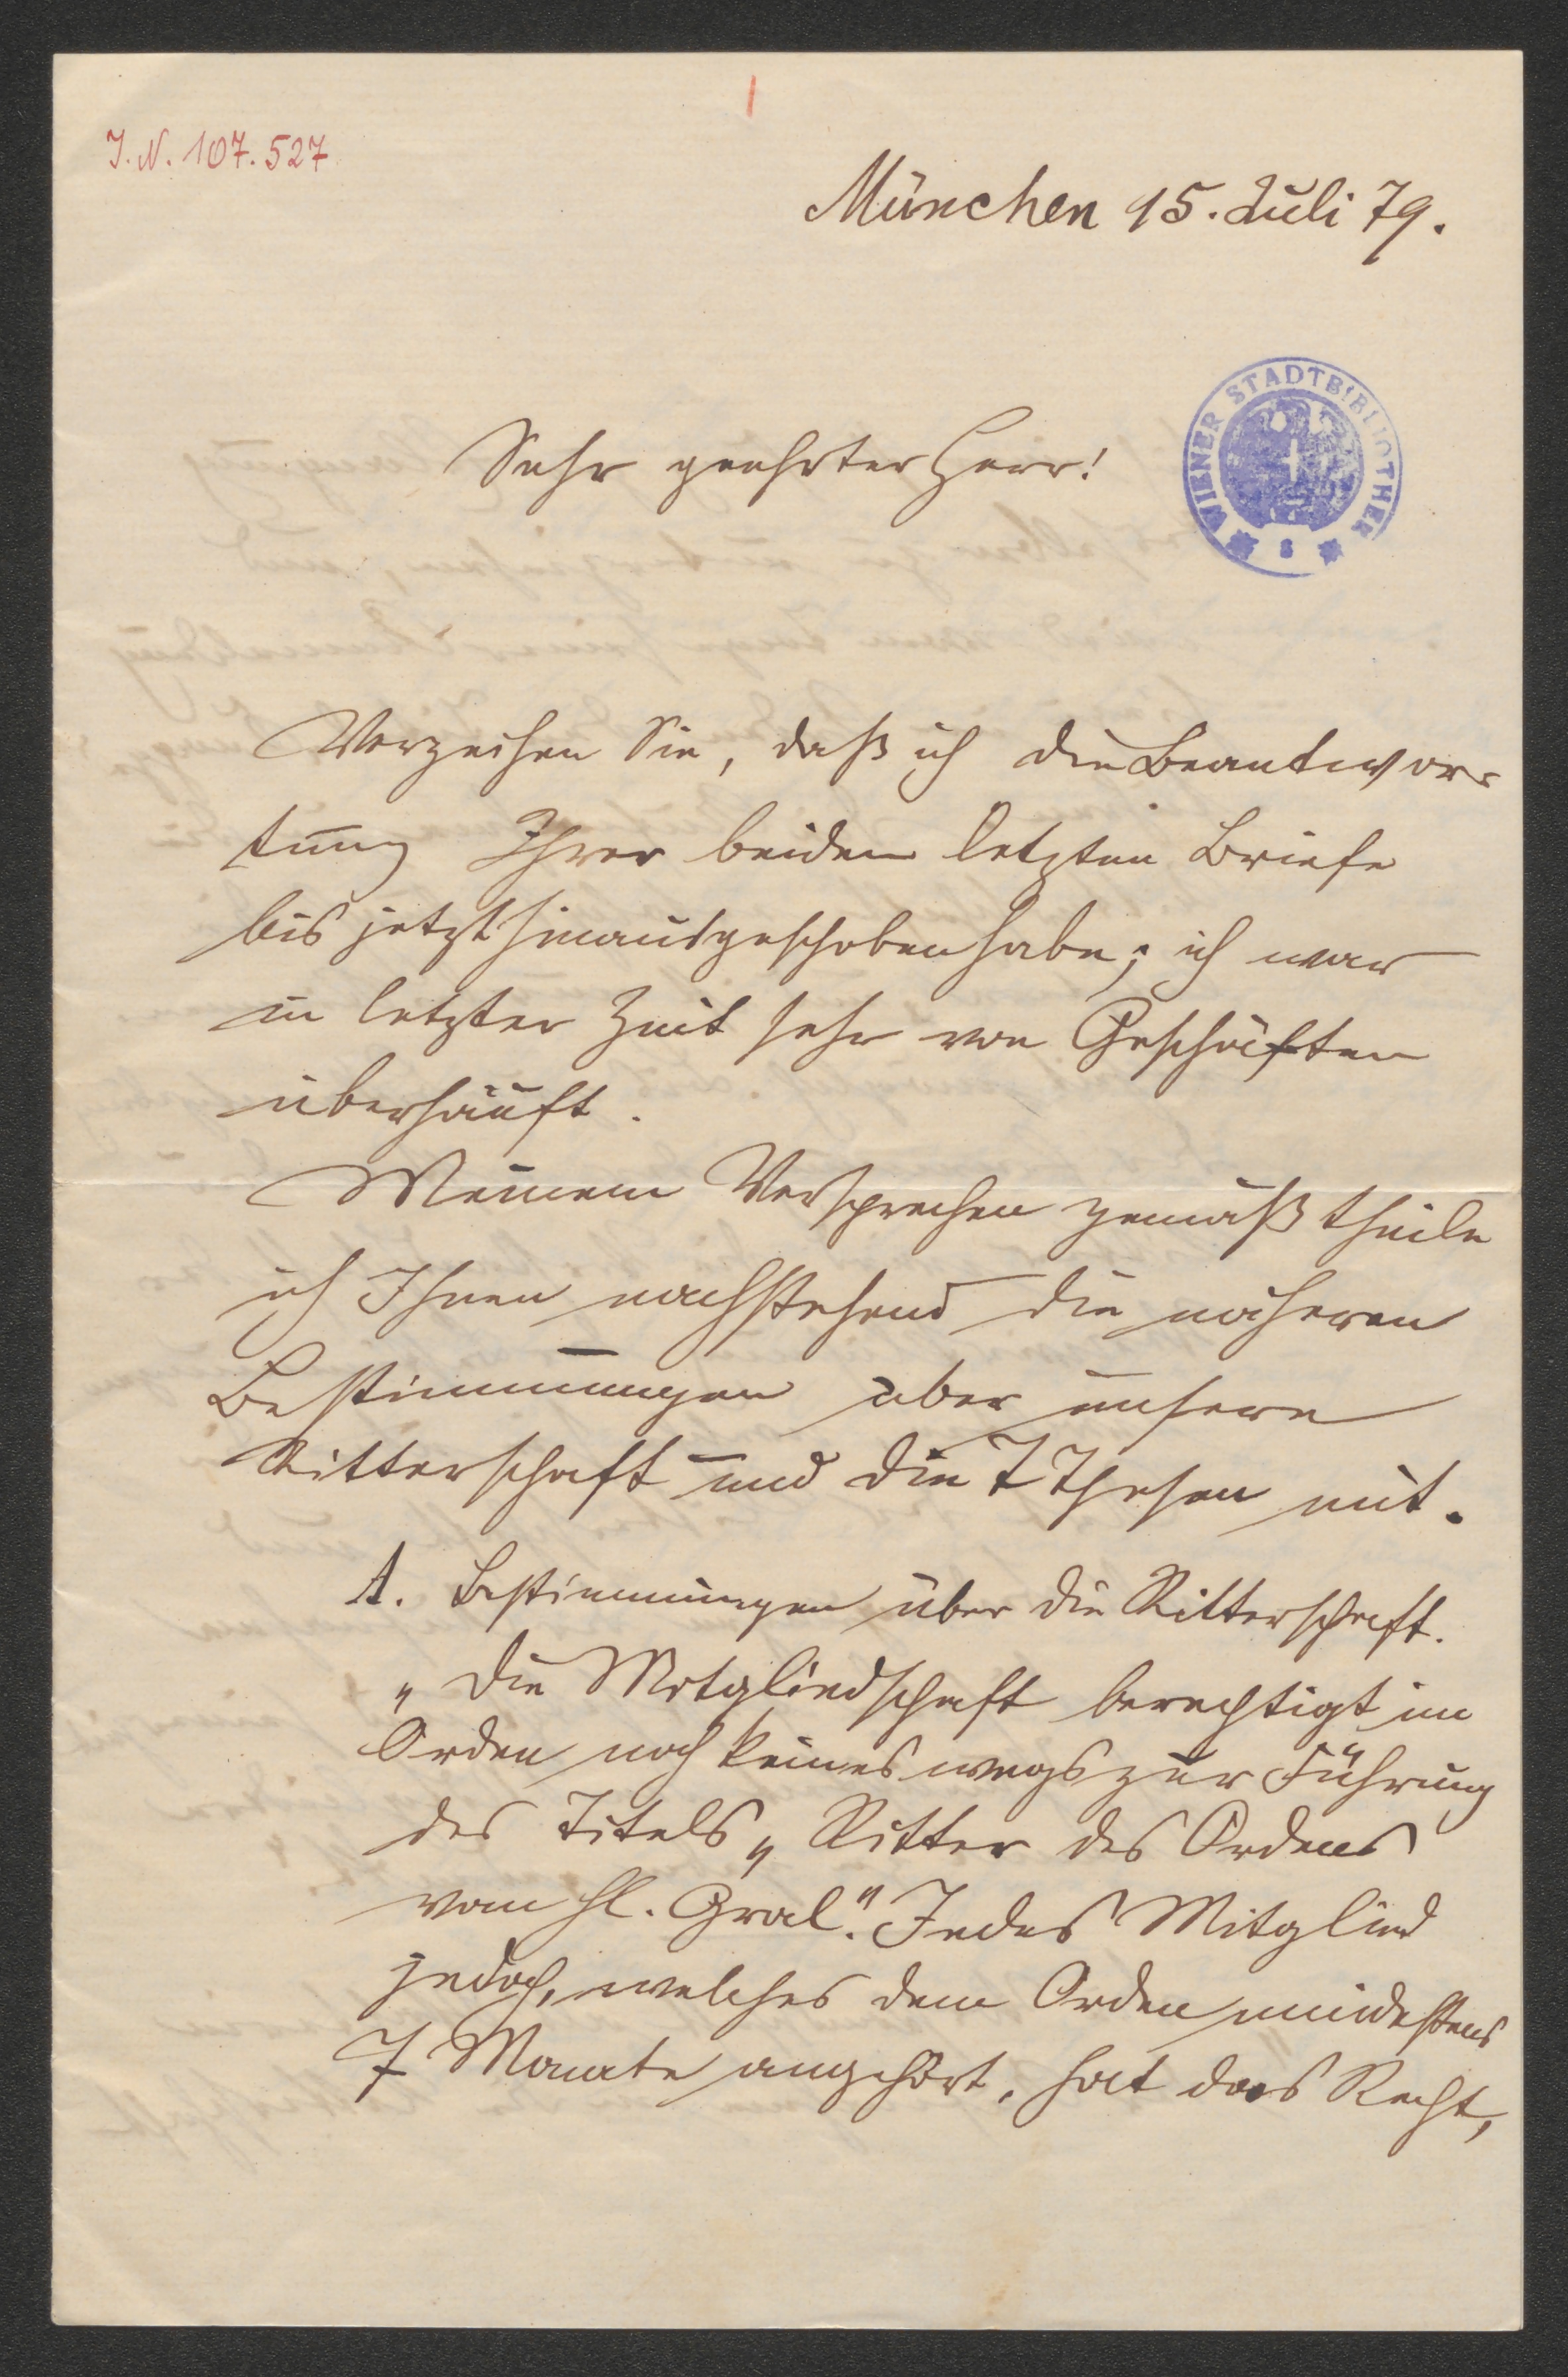 I
J. N. 107.527
München 15. Juli 79.
WIENER STADTBIBLIOTHEK
Sehr geehrter Herr!
Verzeihen Sie, daß ich die Beantwor-
tung Ihrer beiden letzten Briefe
bis jetzt hinausgeschoben habe; ich war
in letzter Zeit sehr von Geschäften
überhäuft.
Meinem Versprechen gemäß theile
ich Ihnen nachstehend die näheren
Bestimmungen über unsere
Ritterschaft und die 7 Thesen mit.
A. Bestimmungen über die Ritterschaft.
„Die Mitgliedschaft berechtigt im
Orden noch keineswegs zur Führung
des Titels „Ritter des Ordens
vom hl. Gral." Jedes Mitglied
jedoch, welches dem Orden mindestens
7 Monate angehört, hat das Recht,